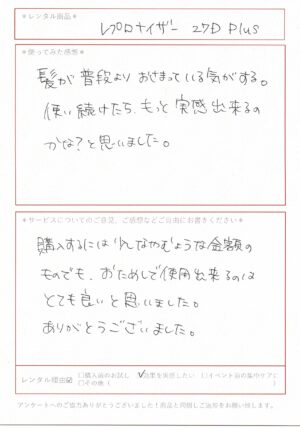 ＊レンタル商品＊
レプロナイザー 27D Plus
＊使ってみた感想＊
髪が普段より おさまっている気がする。
使い続けたら、もっと実感出来るの
かな？と思いました。
＊サービスについてのご意見、ご感想などご自由にお書きください＊
購入するには 少しなやむような金額の
ものでも、おためしで使用出来るのは
とても良いと思いました。
ありがとうございました。
レンタル理由☑ □購入前のお試し ☑効果を実感したい □イベント前の集中ケア
□その他（
アンケートへのご協力ありがとうございました！商品と同梱しご返却をお願い致します。